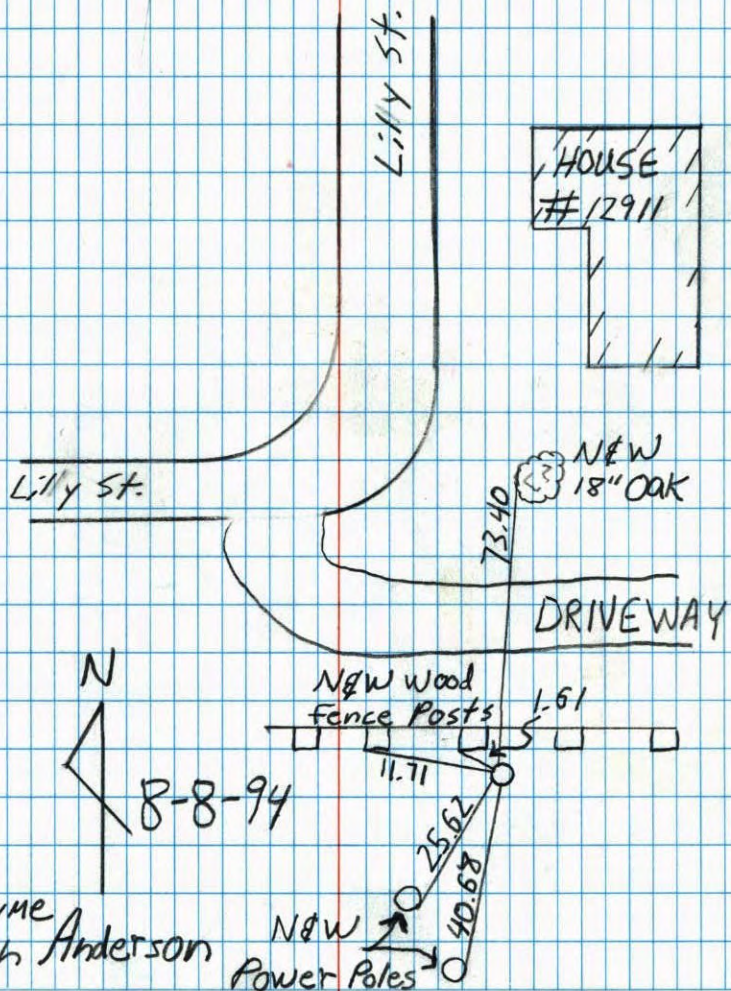 Lilly St.
HOUSE
# 12911
Lilly St.
N&W
18" Oak
73.40
DRIVEWAY
N&W Wood
Fence Posts
1.61
11.71
N
8-8-94
25.62
40.68
Anderson
N&W
Power Poles